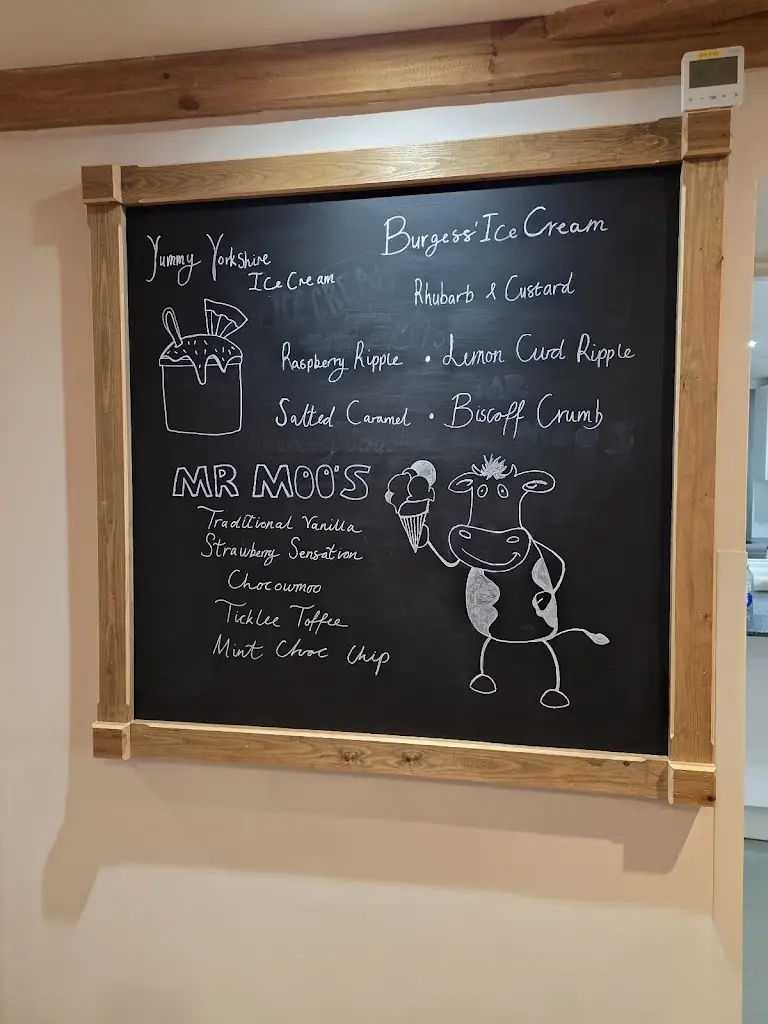 Yummy Yorkshire
Ice Cream
Burgess' Ice Cream
Rhubarb & Custard
Raspberry Ripple • Lemon Curd Ripple
Salted Caramel • Biscoff Crumb
MR MOO'S
Traditional Vanilla
Strawberry Sensation
Chocowmoo
Ticklee Toffee
Mint Choc Chip